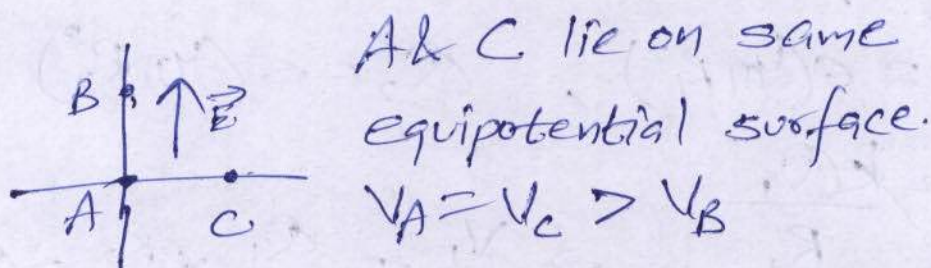 A & C lie on same
B E⃗ equipotential surface.
A C V_A = V_C > V_B